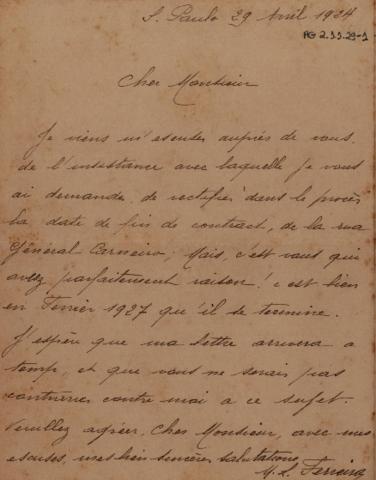 S. Paulo 29 Avril 1924
PG 2.33.29-1
Cher Monsieur
Je viens m'escuser auprès de vous,
de l'insistance avec laquelle je vous
ai demande, de rectifier dans le procès
la date de fin de contract, de la rua
Général Carneiro; Mais, c'est vous qui
avez parfaitement raison! c'est bien
en Fevrier 1927 qu'il se termine.
J'espère que ma lettre arrivera a
temps, et que vous ne serais pas
contre moi a ce sujet.
Veuillez agréer, Cher Monsieur, avec mes
escuses, mes bien sincères salutations,
M. L. Ferreira